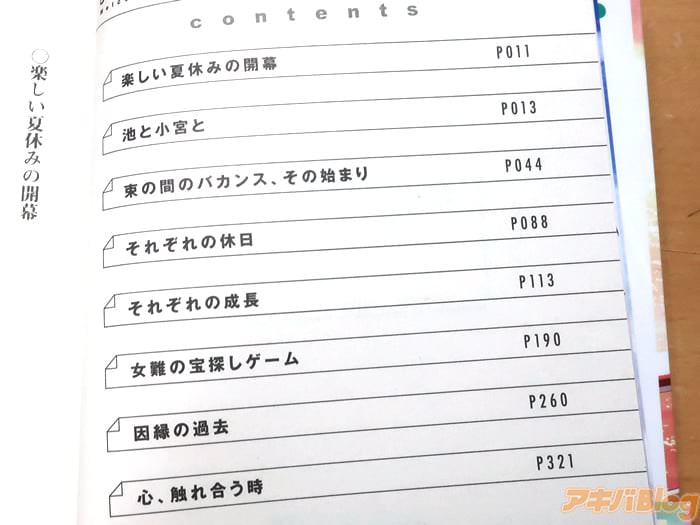 contents
楽しい夏休みの開幕 P011
池と小宮と P013
束の間のバカンス、その始まり P044
それぞれの休日 P088
それぞれの成長 P113
女難の宝探しゲーム P190
因縁の過去 P260
心、触れ合う時 P321
○楽しい夏休みの開幕
アキバBlog